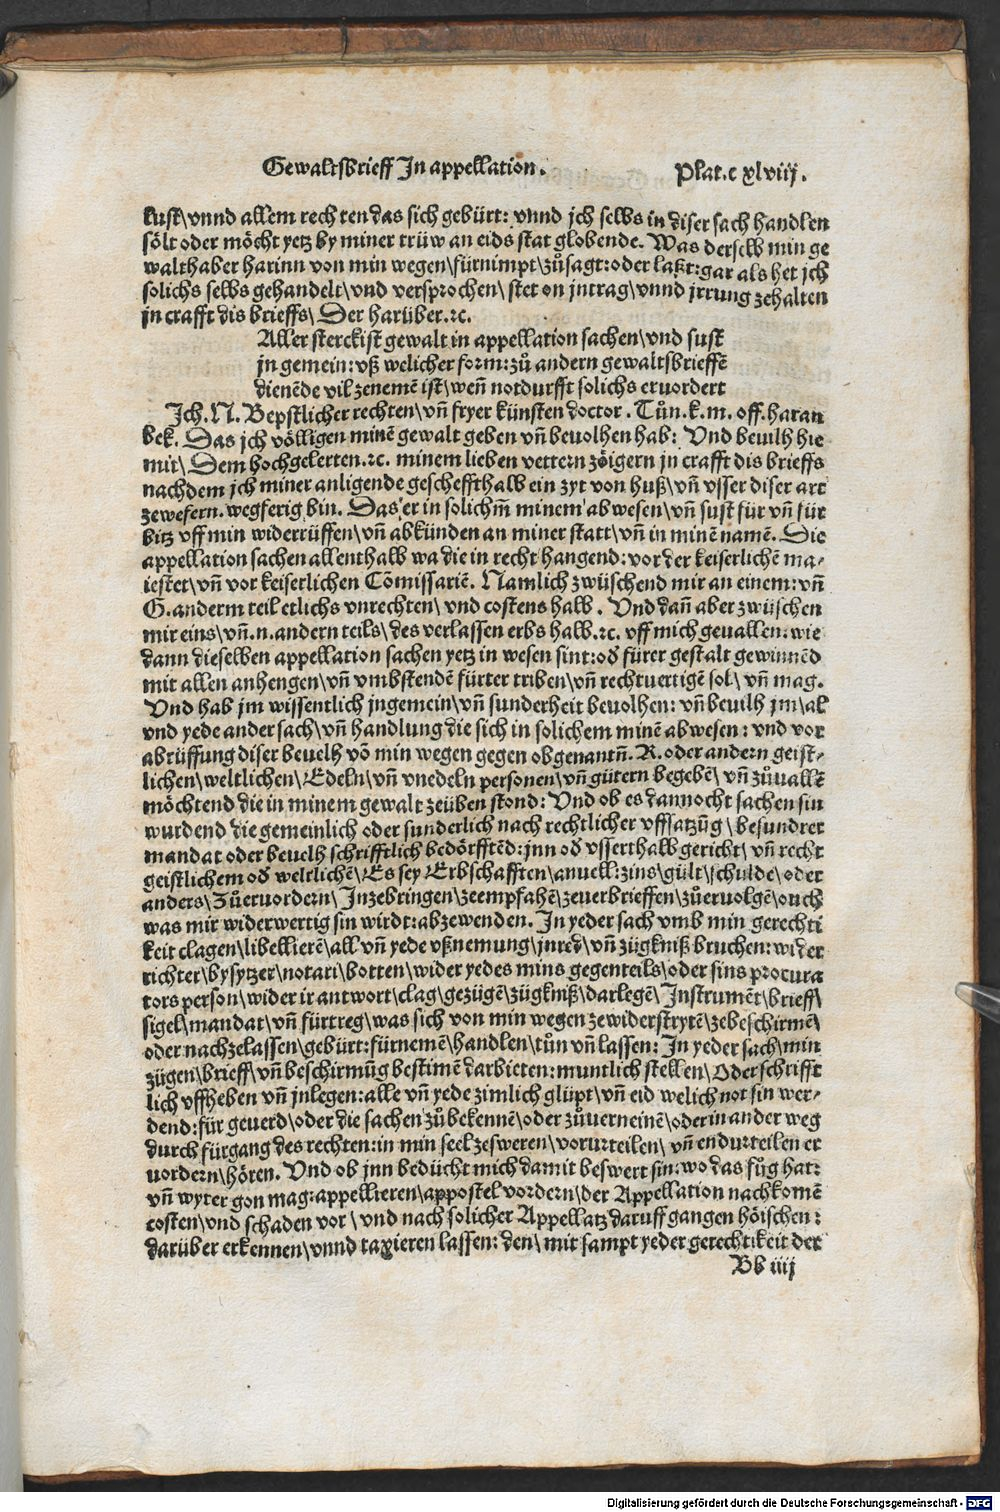 Gewaltsbrieff In appellation. Plat.c xlviij.
lust\ vnnd allem rech ten das sich gebürt: vnnd jch selbs in diser sach handlen
sölt oder möcht yetz by miner trüw an eids stat globende. Was derselb min ge
walthaber harinn von min wegen\ fürnimpt\ zůsagt: oder laßt: gar als het jch
solichs selbs gehandelt\ vnd versprochen\ stet on jntrag\ vnnd jrrung zehalten
jn crafft dis brieffs\ Der harüber.ꝛc.
Aller sterckist gewalt in appellation sachen\ vnd sust
jn gemein: vß welicher form: zů andern gewaltsbrieffē
dienēde vil zenemē ist\ weñ notdurfft solichs eruordert
Ich. N. Bepstlicher rechten\ vñ fryer künsten doctor. Tůn. k. m. off. haran
bek. Das jch völligen minē gewalt geben vñ beuolhen hab: Vnd beuilh hie
mit\ Dem hochgelerten.ꝛc. minem lieben vettern zöigern jn crafft dis brieffs
nachdem jch miner anligende gescheffthalb ein zyt von huß\ vñ vsser diser art
zewefern. wegferig bin. Das er in solichm̄ minem abwesen\ vñ sust für vñ für
bitz vff min widerrüffen\ vñ abkünden an miner statt\ vñ in minē namē. Die
appellation sachen allenthalb wa die in recht hangend: vor der keiserlichē ma⸗
iestet\ vñ vor keiserlichen Cōmissariē. Namlich zwüschend mir an einem: vñ
G. anderm teil etlichs vnrechten\ vnd costens halb. Vnd dañ aber zwüschen
mir eins\ vñ.n. andern teils\ des verlassen erbs halb.ꝛc. vff mich geuallen: wie
dann dieselben appellation sachen yetz in wesen sint: od̄ fürer gestalt gewinnēd
mit allen anhengen\ vñ vmbstendē fürter triben\ vñ rechtuertigē sol\ vñ mag.
Vnd hab jm wissentlich jngemein\ vñ sunderheit beuolhen: vñ beuilh jm\ al
vnd yede ander sach\ vñ handlung die sich in solichem minē abwesen: vnd vor
abrüffung diser beuelh vō min wegen gegen obgenantñ. R. oder andern geist⸗
lichen\ weltlichen\ Edeln\ vñ vnedeln personen\ vñ gütern begebē\ vñ zůuallē
möchtend die in minem gewalt zeüben stond: Vnd ob es dannocht sachen sin
wurdend die gemeinlich oder sunderlich nach rechtlicher vffsatzūg\ besundrer
mandat oder beuelh schrifftlich bedörfftēd: jnn od̄ vsserthalb gericht\ vñ recht
geistlichem od̄ weltlichē\ Es sey Erbschafften\ anuell: zins\ gült\ schulde\ oder
anders\ Zůeruordern\ Inzebringen\ zeempfahē\ zeuerbrieffen\ zůeruolgē\ ouch
was mir widerwertig sin wirdt: abzewenden. In yeder sach vmb min gerechti
keit clagen\ libellierē\ all vñ yede vßnemung\ jnred\ vñ zügkniß bruchen: wider
richter\ bysytzer\ notari\ botten\ wider yedes mins gegenteils\ oder sins procura
tors person\ wider ir antwort\ clag\ gezügē\ zügkniß\ darlegē\ Instrumēt\ brieff\
sigel\ mandat\ vñ fürtreg\ was sich von min wegen zewiderstrytē\ zebeschirmē\
oder nachzelassen\ gebürt: fürnemē\ handlen\ tůn vñ lassen: In yeder sach\ min
zügen\ brieff\ vñ beschirmūg bestimē darbieten: muntlich stellen\ Oder schrifft
lich vffheben vñ jnlegen: alle vñ yede zimlich glüpt\ vñ eid welich not sin wer⸗
dend: für geuerd\ oder die sachen zůbekennē\ oder zůuerneinē\ oder in ander weg
durch fürgang des rechten: in min seel zesweren\ vorurteilen\ vñ endurteilen er
uordern\ hören. Vnd ob jnn bedücht mich damit beswert sin: wo das fůg hat:
vñ wyter gon mag: appellieren\ appostel vordern\ der Appellation nachkomē
costen\ vnd schaden vor\ vnd nach solicher Appellatz daruff gangen höischen:
darüber erkennen\ vnnd taxieren lassen: den\ mit sampt yeder gerechtikeit der
Bb iiij
Digitalisierung gefördert durch die Deutsche Forschungsgemeinschaft - DFG